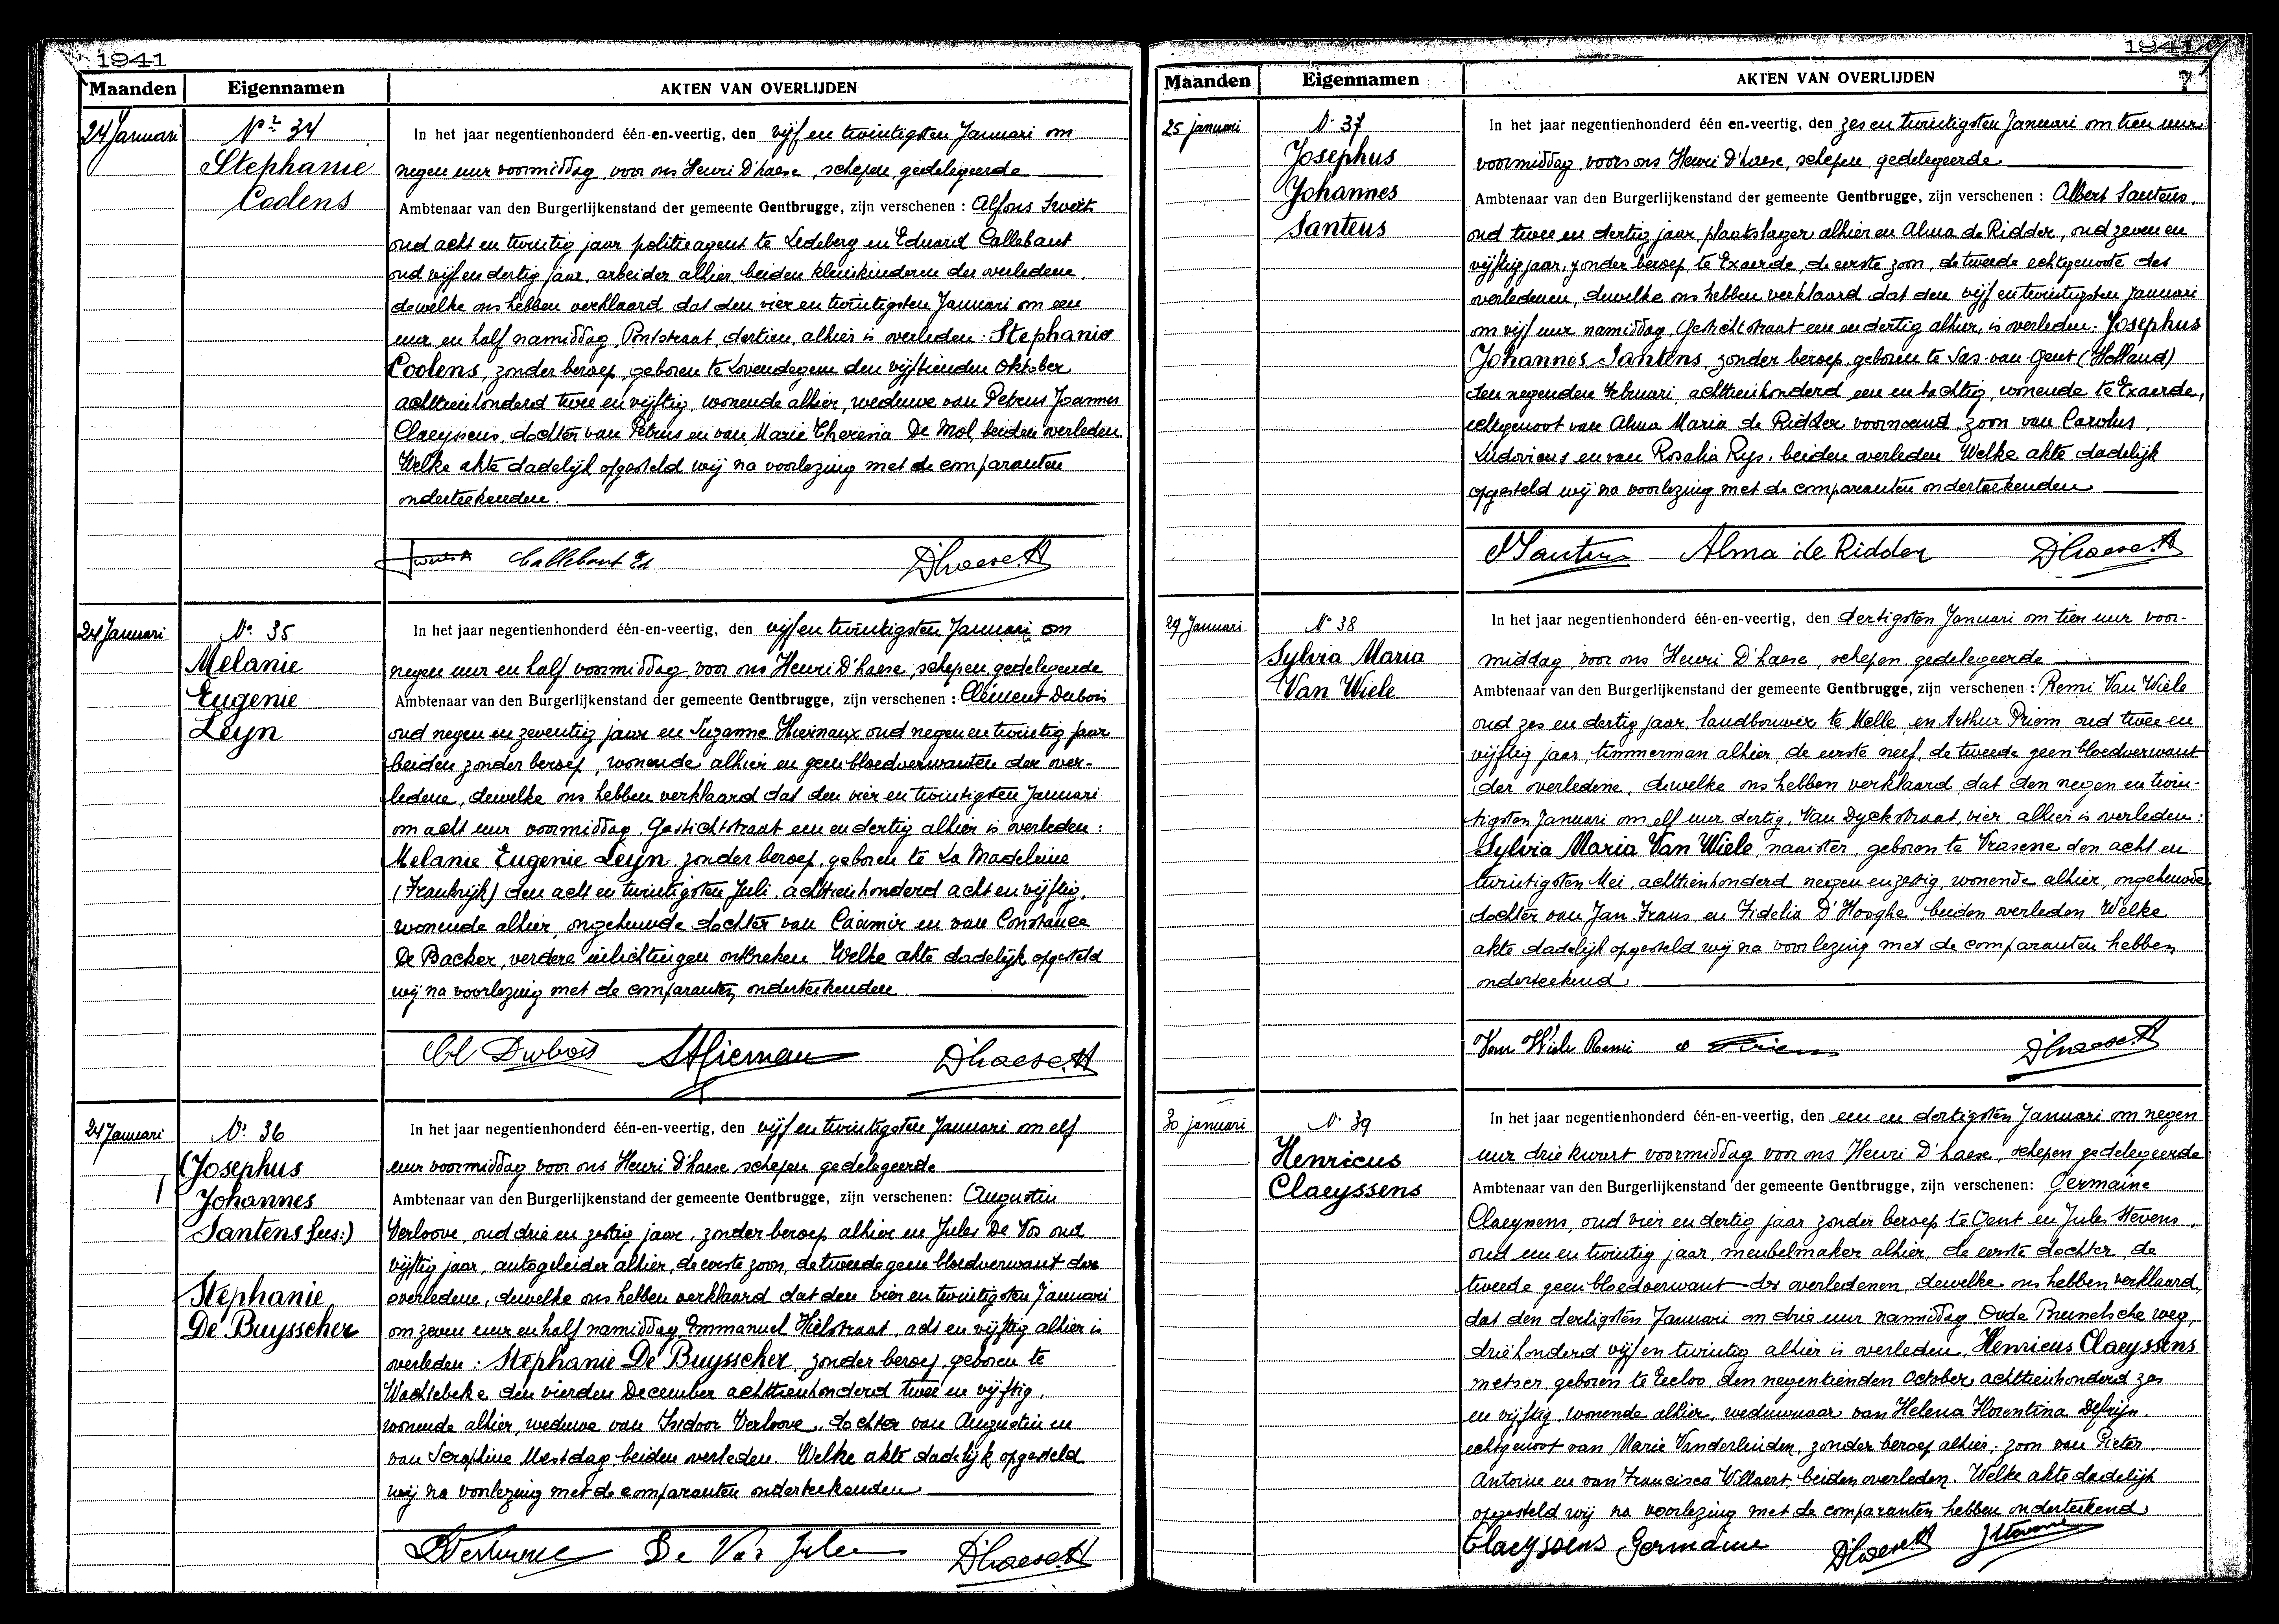 1941
Maanden Eigennamen AKTEN VAN OVERLIJDEN
24 Januari
Nr 34
Stephanie
Coolens
In het jaar negentienhonderd één-en-veertig, den vijf en twintigsten Januari om
negen uur voormiddag, voor ons Henri D'haese, schepen, gedelegeerde
Ambtenaar van den Burgerlijkenstand der gemeente Gentbrugge, zijn verschenen : Alfons Sweets
oud acht en twintig jaar politieagent te Ledeberg en Eduard Callebaut
oud vijf en dertig jaar, arbeider alhier, beiden kleinkinderen der overledene,
dewelke ons hebben verklaard dat den vier en twintigsten Januari om een
uur en half namiddag, straat dertien, alhier is overleden : Stephanie
Coolens, zonder beroep, geboren te Lovendegem den vijftienden Oktober
achttienhonderd twee en vijftig, wonende alhier, weduwe van Petrus Joannes
Claeyssens, dochter van Petrus en van Marie Theresia De Mol, beiden overleden
Welke akte dadelijk opgesteld wij na voorlezing met de comparanten
onderteekenden.
Callebaut Ed D'haese H
24 Januari
No 35
Melanie
Eugenie
Leyn
In het jaar negentienhonderd één-en-veertig, den vijf en twintigsten Januari om
negen uur en half voormiddag voor ons Henri D'haese, schepen, gedelegeerde
Ambtenaar van den Burgerlijkenstand der gemeente Gentbrugge, zijn verschenen : Clément Dubois
oud negen en zeventig jaar en Suzanne Hiernaux oud negen en twintig jaar
beiden zonder beroep, wonende alhier en geen bloedverwanten der over-
ledene, dewelke ons hebben verklaard dat den vier en twintigsten Januari
om acht uur voormiddag, Gestichtstraat een en dertig alhier is overleden :
Melanie Eugenie Leyn zonder beroep, geboren te La Madeleine
(Frankrijk) den acht en twintigsten Juli achttienhonderd acht en vijftig,
wonende alhier, ongehuwde dochter van Casimir en van Constance
De Backer, verdere inlichtingen ontbreken. Welke akte dadelijk opgesteld
wij na voorlezing met de comparanten onderteekenden.
Cl Dubois SHiernau D'haese H
24 Januari
No 36
(Josephus
Johannes
Santens )
Stephanie
De Buysscher
In het jaar negentienhonderd één-en-veertig, den vijf en twintigsten Januari om elf
uur voormiddag voor ons Henri D'haese schepen gedelegeerde
Ambtenaar van den Burgerlijkenstand der gemeente Gentbrugge, zijn verschenen: Augustin
Verloove, oud drie en zestig jaar, zonder beroep alhier en Jules De Vos oud
vijftig jaar, autogeleider alhier, de eerste zoon, de tweede geen bloedverwant der
overledene, dewelke ons hebben verklaard dat den vier en twintigsten Januari
om zeven uur en half namiddag, Emmanuel Hielstraat, acht en vijftig alhier is
overleden : Stephanie De Buysscher, zonder beroep, geboren te
Wachtebeke den vierden December achttienhonderd twee en vijftig,
wonende alhier, weduwe van Isidoor Verloove, dochter van Augustin en
van Seraphine Mestdag beiden overleden. Welke akte dadelijk opgesteld
wij na voorlezing met de comparanten onderteekenden
Verloove De Vos Jules D'haese H
1941
7
Maanden Eigennamen AKTEN VAN OVERLIJDEN
25 januari
No 37
Josephus
Johannes
Santens
In het jaar negentienhonderd één en-veertig, den zes en twintigsten Januari om tien uur
voormiddag, voor ons Henri D'haese, schepen, gedelegeerde
Ambtenaar van den Burgerlijkenstand der gemeente Gentbrugge, zijn verschenen : Albert Santens,
oud twee en dertig jaar, plaatslager alhier en Alma de Ridder, oud zeven en
vijftig jaar, zonder beroep, te Exaerde, de eerste zoon, de tweede echtgenoote des
overledenen, dewelke ons hebben verklaard dat den vijf en twintigsten Januari
om vijf uur namiddag, Gestichtstraat een en dertig alhier, is overleden: Josephus
Johannes Santens, zonder beroep, geboren te Sas-van-Gent (Holland)
den negenden Februari achttienhonderd een en tachtig, wonende te Exaerde,
echtgenoot van Alma Maria de Ridder voornoemd, zoon van Carolus
Ludovicus en van Rosalia Rys, beiden overleden Welke akte dadelijk
opgesteld wij na voorlezing met de comparanten onderteekenden
Santens Alma de Ridder D'haese H
29 Januari
No 38
Sylvia Maria
Van Wiele
In het jaar negentienhonderd één-en-veertig, den dertigsten Januari om tien uur voor-
middag voor ons Henri D'haese, schepen gedelegeerde
Ambtenaar van den Burgerlijkenstand der gemeente Gentbrugge, zijn verschenen : Remi Van Wiele
oud zes en dertig jaar, landbouwer te Melle en Arthur Priem oud twee en
vijftig jaar, timmerman alhier, de eerste neef, de tweede geen bloedverwant
der overledene, dewelke ons hebben verklaard dat den negen en twin-
tigsten Januari om elf uur dertig, Van Dyckstraat, vier, alhier is overleden :
Sylvia Maria Van Wiele, naaister, geboren te Vrasene den acht en
twintigsten Mei, achttienhonderd negen en zestig, wonende alhier, ongehuwde
dochter van Jan Frans en Fidelia D'Hooghe beiden overleden Welke
akte dadelijk opgesteld wij na voorlezing met de comparanten hebben
onderteekend.
Van Wiele Remi Priem D'haese H
30 januari
No 39
Henricus
Claeyssens
In het jaar negentienhonderd één-en-veertig, den een en dertigsten Januari om negen
uur drie kwart voormiddag voor ons Henri D'haese, schepen gedelegeerde
Ambtenaar van den Burgerlijkenstand der gemeente Gentbrugge, zijn verschenen: Germaine
Claeyssens, oud vier en dertig jaar zonder beroep te Gent en Jules Stevens,
oud een en twintig jaar, meubelmaker alhier, de eerste dochter, de
tweede geen bloedverwant des overledenen, dewelke ons hebben verklaard,
dat den dertigsten Januari om drie uur namiddag Oude Brusselsche weg,
driehonderd vijf en twintig alhier is overleden, Henricus Claeyssens
metser geboren te Eecloo, den negentienden October, achttienhonderd zes
en vijftig, wonende alhier, weduwnaar van Helena Florentina
echtgenoot van Marie Vanderlinden, zonder beroep alhier; zoon van Pieter
Antoine en van Francisca Willaert, beiden overleden. Welke akte dadelijk
opgesteld wij na voorlezing met de comparanten hebben onderteekend.
Claeyssens Germaine D'haese H JStevens